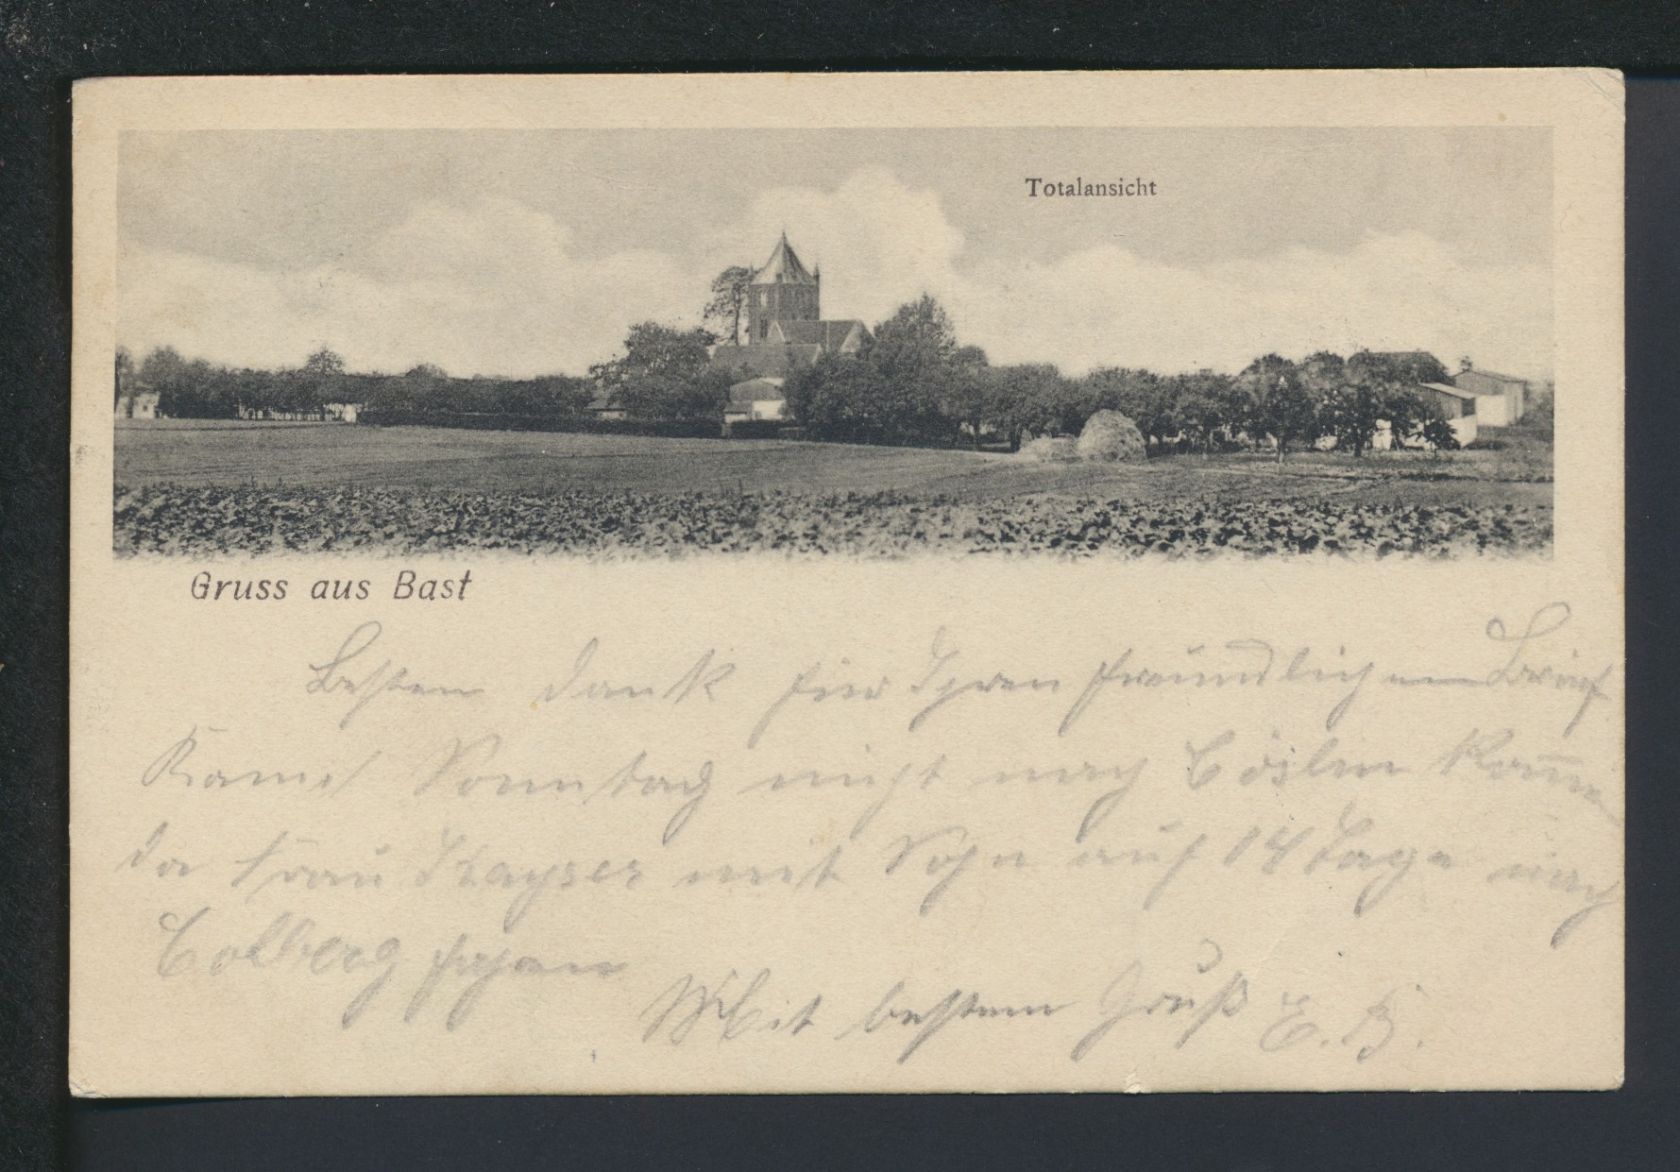 Totalansicht
Gruss aus Bast
Besten dank für Ihren freundlichen Brief
Kann Sonntag nicht nach Cöslin kommen
da Frau Kayser mit Sohn auf 14 Tage nach
Colberg fahren
Mit bestem Gruß E. B.